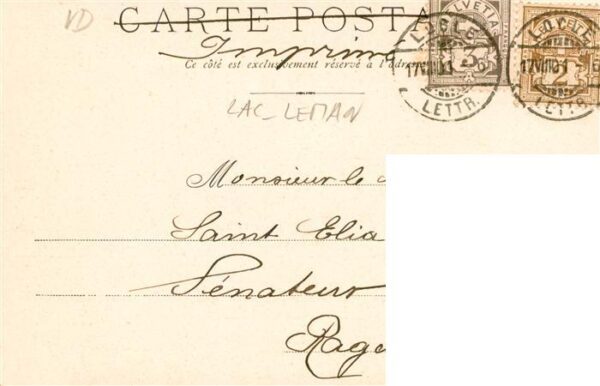 VD
CARTE POSTA
Imprimé
Ce côté est exclusivement réservé à l'adresse
HELVETIA
LOCLE
17.VIII.01
LETTR.
LOCLE
17.VIII.01
LETTR.
2
LAC_LEMAN
Monsieur le
Saint Elia
Sénateur
Rage